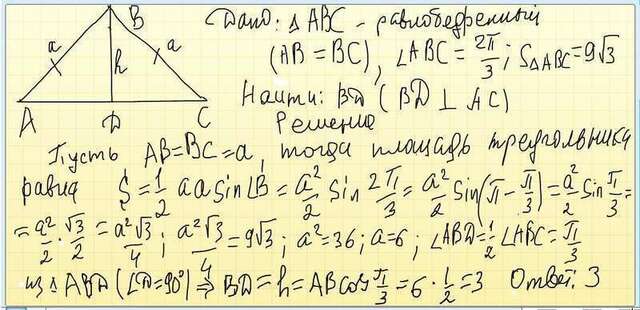 B
a a
h
A D C
Дано: △ABC - равнобедренный
(AB = BC), ∠ABC = 2π/3; S△ABC = 9√3
Найти: BD (BD ⊥ AC)
Решение
Пусть AB=BC=a, тогда площадь треугольника
равна S = 1/2 a a sin∠B = a²/2 sin 2π/3 = a²/2 sin(π - π/3) = a²/2 sin π/3 =
= a²/2 · √3/2 = a²√3/4; a²√3/4 = 9√3; a²=36; a=6; ∠ABD = 1/2 ∠ABC = π/3
из △ABD (∠D=90°) ⇒ BD = h = AB cos π/3 = 6 · 1/2 = 3 Ответ: 3